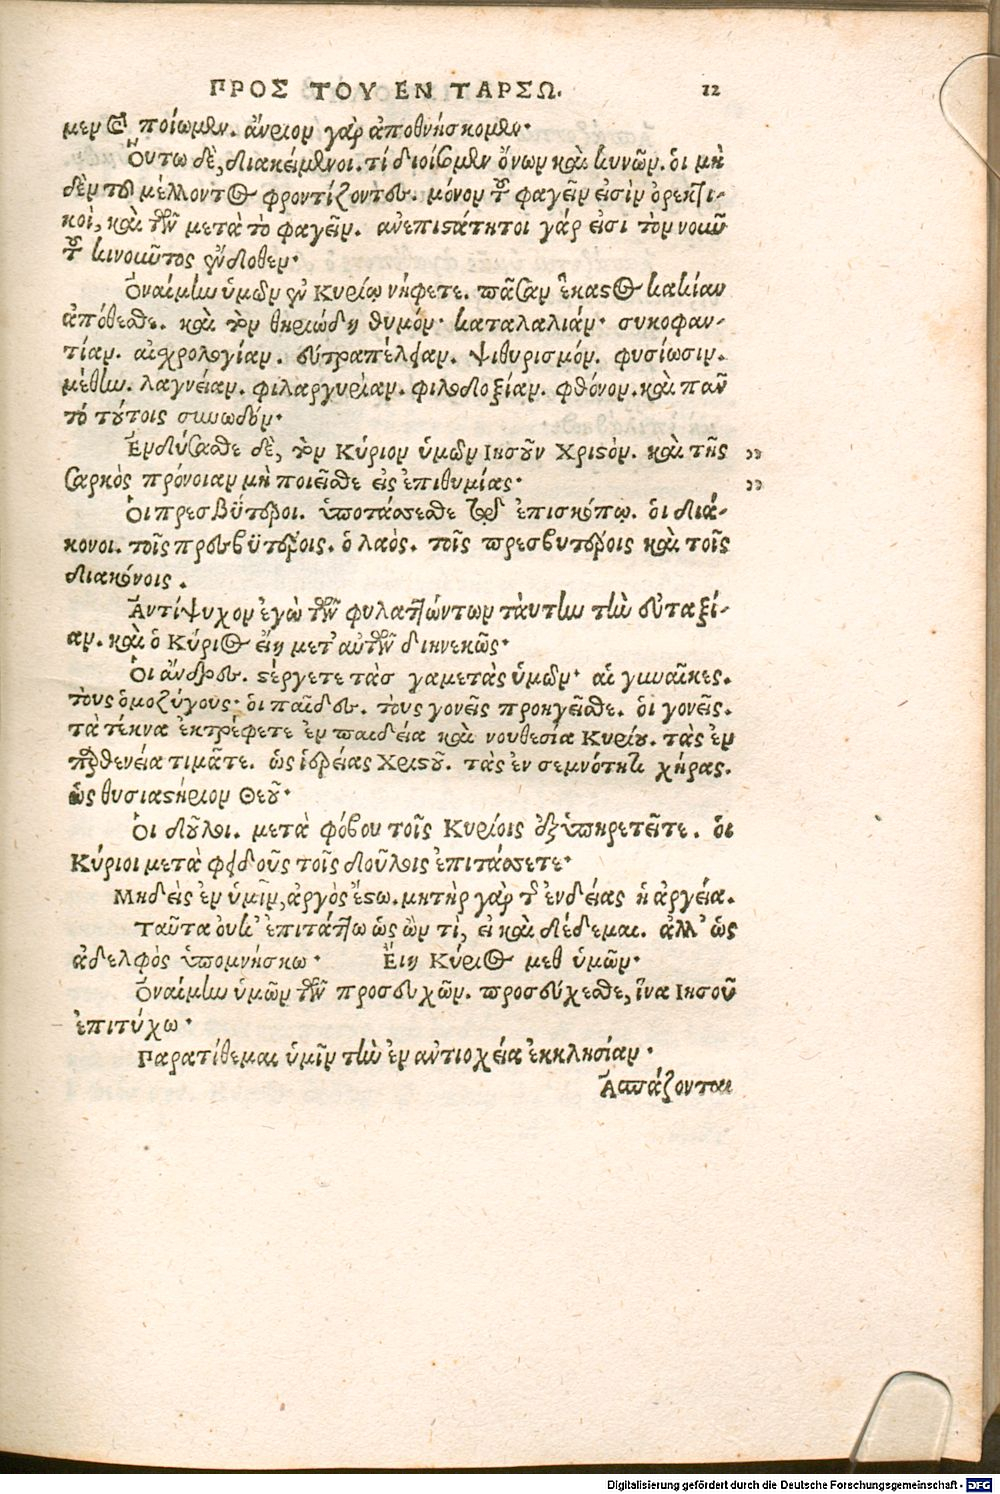 ΠΡΟΣ ΤΟΥ ΕΝ ΤΑΡΣΩ. 12
μεν καὶ ποίωμεν. ἄυριον γὰρ ἀποθνήσκομεν·
Οὕτω δὲ, διακείμενοι. τί διοίσομεν ὄνων καὶ κυνῶν. ὁι μη
δὲν τοῦ μέλλοντος φροντίζοντες. μόνον τοῦ φαγεῖν εἰσὶν ὀρεκτι-
κοὶ, καὶ τῶν μετὰ τὸ φαγεῖν. ἀνεπιστάτητοι γάρ εἰσι τὸν νοῦν
τοῦ κινοῦντος ἔνδοθεν·
Ὀναίμην ὑμῶν ἐν Κυρίῳ νήφετε. πᾶσαν ἕκαστος κακίαν
ἀπόθεσθε. καὶ τὸν θηριώδη θυμόν· καταλαλιάν· συκοφαν-
τίαν. αἰσχρολογίαν. εὐτραπέλειαν. ψιθυρισμόν. φυσίωσιν.
μέθην. λαγνείαν. φιλαργυρίαν. φιλοδοξίαν. φθόνον. καὶ πᾶν
τὸ τούτοις συνωδόν·
Ἐνδύσασθε δὲ, τὸν Κύριον ὑμῶν Ιησοῦν Χριστόν. καὶ τῆς ,,
σαρκὸς πρόνοιαν μὴ ποιεῖσθε εἰς ἐπιθυμίας· ,,
Ὁι πρεσβΰτεροι. ὑποτάσσεσθε τῷ ἐπισκόπῳ. ὁι διά-
κονοι. τοῖς πρεσβϋτέροις. ὁ λαὸς. τοῖς πρεσβυτέροις καὶ τοῖς
διακόνοις.
Ἀντίψυχον ἐγὼ τῶν φυλαττώντων τὰυτην τὴν εὐταξί-
αν. καὶ ὁ Κύριος εἴη μετ' αὐτῶν διηνεκῶς·
Ὁι ἄνδρες. στέργετε τὰσ γαμετὰς ὑμῶν· αἱ γυναῖκες.
τοὺς ὁμοζύγους· ὁι παῖδες. τοὺς γονεῖς προηγεῖσθε. ὁι γονεῖς.
τὰ τέκνα ἐκτρέφετε ἐν παιδείᾳ καὶ νουθεσίᾳ Κυρίου. τὰς ἐν
παρθενείᾳ τιμᾶτε. ὡς ἱερείας Χριστοῦ. τὰς ἐν σεμνότητι χήρας.
ὡς θυσιαστήριον Θεοῦ·
Ὁι δοῦλοι. μετὰ φόβου τοῖς Κυρίοις ἐξυπηρετεῖτε. ὁι
Κύριοι μετὰ φειδοῦς τοῖς δούλοις ἐπιτάσσετε·
Μηδεὶς ἐν ὑμῖν, ἀργὸς ἔστω. μητὴρ γὰρ τῆς ἐνδείας ἡ ἀργεία.
Ταῦτα ουκ' ἐπιτάττω ὡς ὢν τὶ, εἰ καὶ δέδεμαι. ἀλλ' ὡς
ἀδελφὸς ὑπομνήσκω· Εἴη Κύριος μεθ ὑμῶν·
Ὀναίμην ὑμῶν τῶν προσευχῶν. προσεύχεσθε, ἵνα Ιησοῦ
ἐπιτύχω·
Παρατίθεμαι ὑμῖν τὴν ἐν αὐτιοχεία ἐκκλησίαν·
Ἀσπάζονται
Digitalisierung gefördert durch die Deutsche Forschungsgemeinschaft - DFG